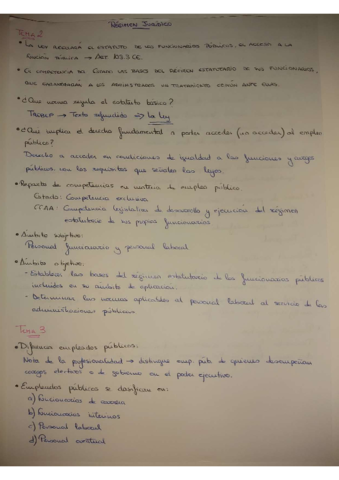 RÉGIMEN JURÍDICO
Tema 2
• LA LEY REGULARÁ EL ESTATUTO DE LOS FUNCIONARIOS PÚBLICOS, EL ACCESO A LA
FUNCIÓN PÚBLICA → ART. 103.3 CE.
• ES COMPETENCIA DEL LAS BASES DEL RÉGIMEN ESTATUTARIO DE SUS FUNCIONARIOS,
QUE GARANTIZAN A LOS ADMINISTRADOS UN TRATAMIENTO COMÚN ANTE ELLAS.
• ¿Qué norma regula el estatuto básico?
TREBEP → Texto refundido → la ley
• ¿Qué implica el derecho fundamental a poder acceder (un acceder) al empleo
público?
Derecho a acceder en condiciones de igualdad a las funciones y cargos
públicos con los requisitos que señalen las leyes.
• Reparto de competencias en materia de empleo público.
Estado: Competencia exclusiva
CCAA: Competencia legislativa de desarrollo y ejecución del régimen
estatutario de sus propios funcionarios
• Ámbito subjetivo:
Personal funcionario y personal laboral
• Ámbito objetivo:
- Establecer las bases del régimen estatutario de los funcionarios públicos
incluidos en su ámbito de aplicación.
- Determinar las normas aplicables al personal laboral al servicio de las
administraciones públicas
Tema 3
• empleados públicos:
Nota de la profesionalidad → distingue emp. púb. de quienes desempeñan
cargos electivos o de gobierno en el poder ejecutivo.
• Empleados públicos se clasifican en:
a) Funcionarios de carrera
b) Funcionarios interinos
c) Personal laboral
d) Personal eventual